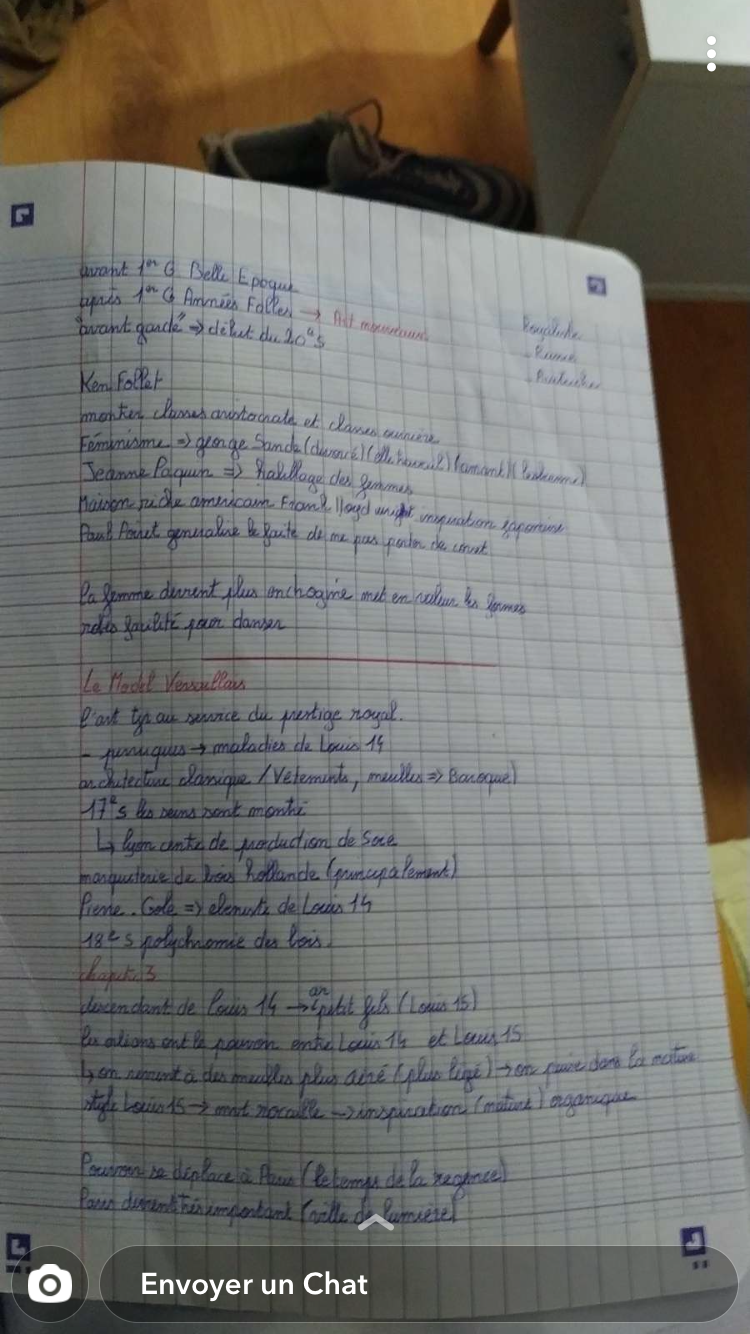 avant 1er G Belle Epoque
après 1er G Années Folles → Art nouveau
"avant garde" => début du 20e s
Royaliste
Ken Follet
montrer classes aristocrate et classes ouvrière
Féminisme => george Sande (divorcé) (amant)
Jeanne Paquin => habillage des femmes
Maison riche americain Frank lloyd wright inspiration japonaise
Paul Poiret generalise le faite de ne pas porter de corset
la femme devient plus androgine met en valeur les formes
robes facilité pour danser
Le Model Versaillais
l'art tjs au service du prestige royal.
- perruques → maladies de Louis 14
architecture classique / Vêtements, meubles => Baroque)
17e s les seins sont montré
↳ lyon centre de production de soie
marqueterie de bois hollande (principalement)
Pierre . Gole => ebeniste de Louis 14
18e s polychromie des bois.
chapitre 3
descendant de louis 14 → ar petit fils (Louis 15)
les orlians ont le pouvoir entre Louis 14 et Louis 15
↳ on revient à des meubles plus aéré (plus légé) → on puise dans la nature
style Louis 15 → mot rocaille → inspiration (nature) organique
Pouvoir se déplace à Paris (le temps de la regence)
Paris devient très important (ville de lumière)
Envoyer un Chat